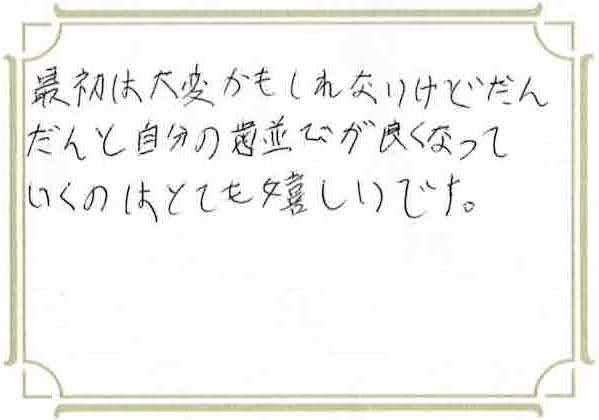 最初は大変かもしれないけどだん
だんと自分の歯並びが良くなって
いくのはとても嬉しいです。